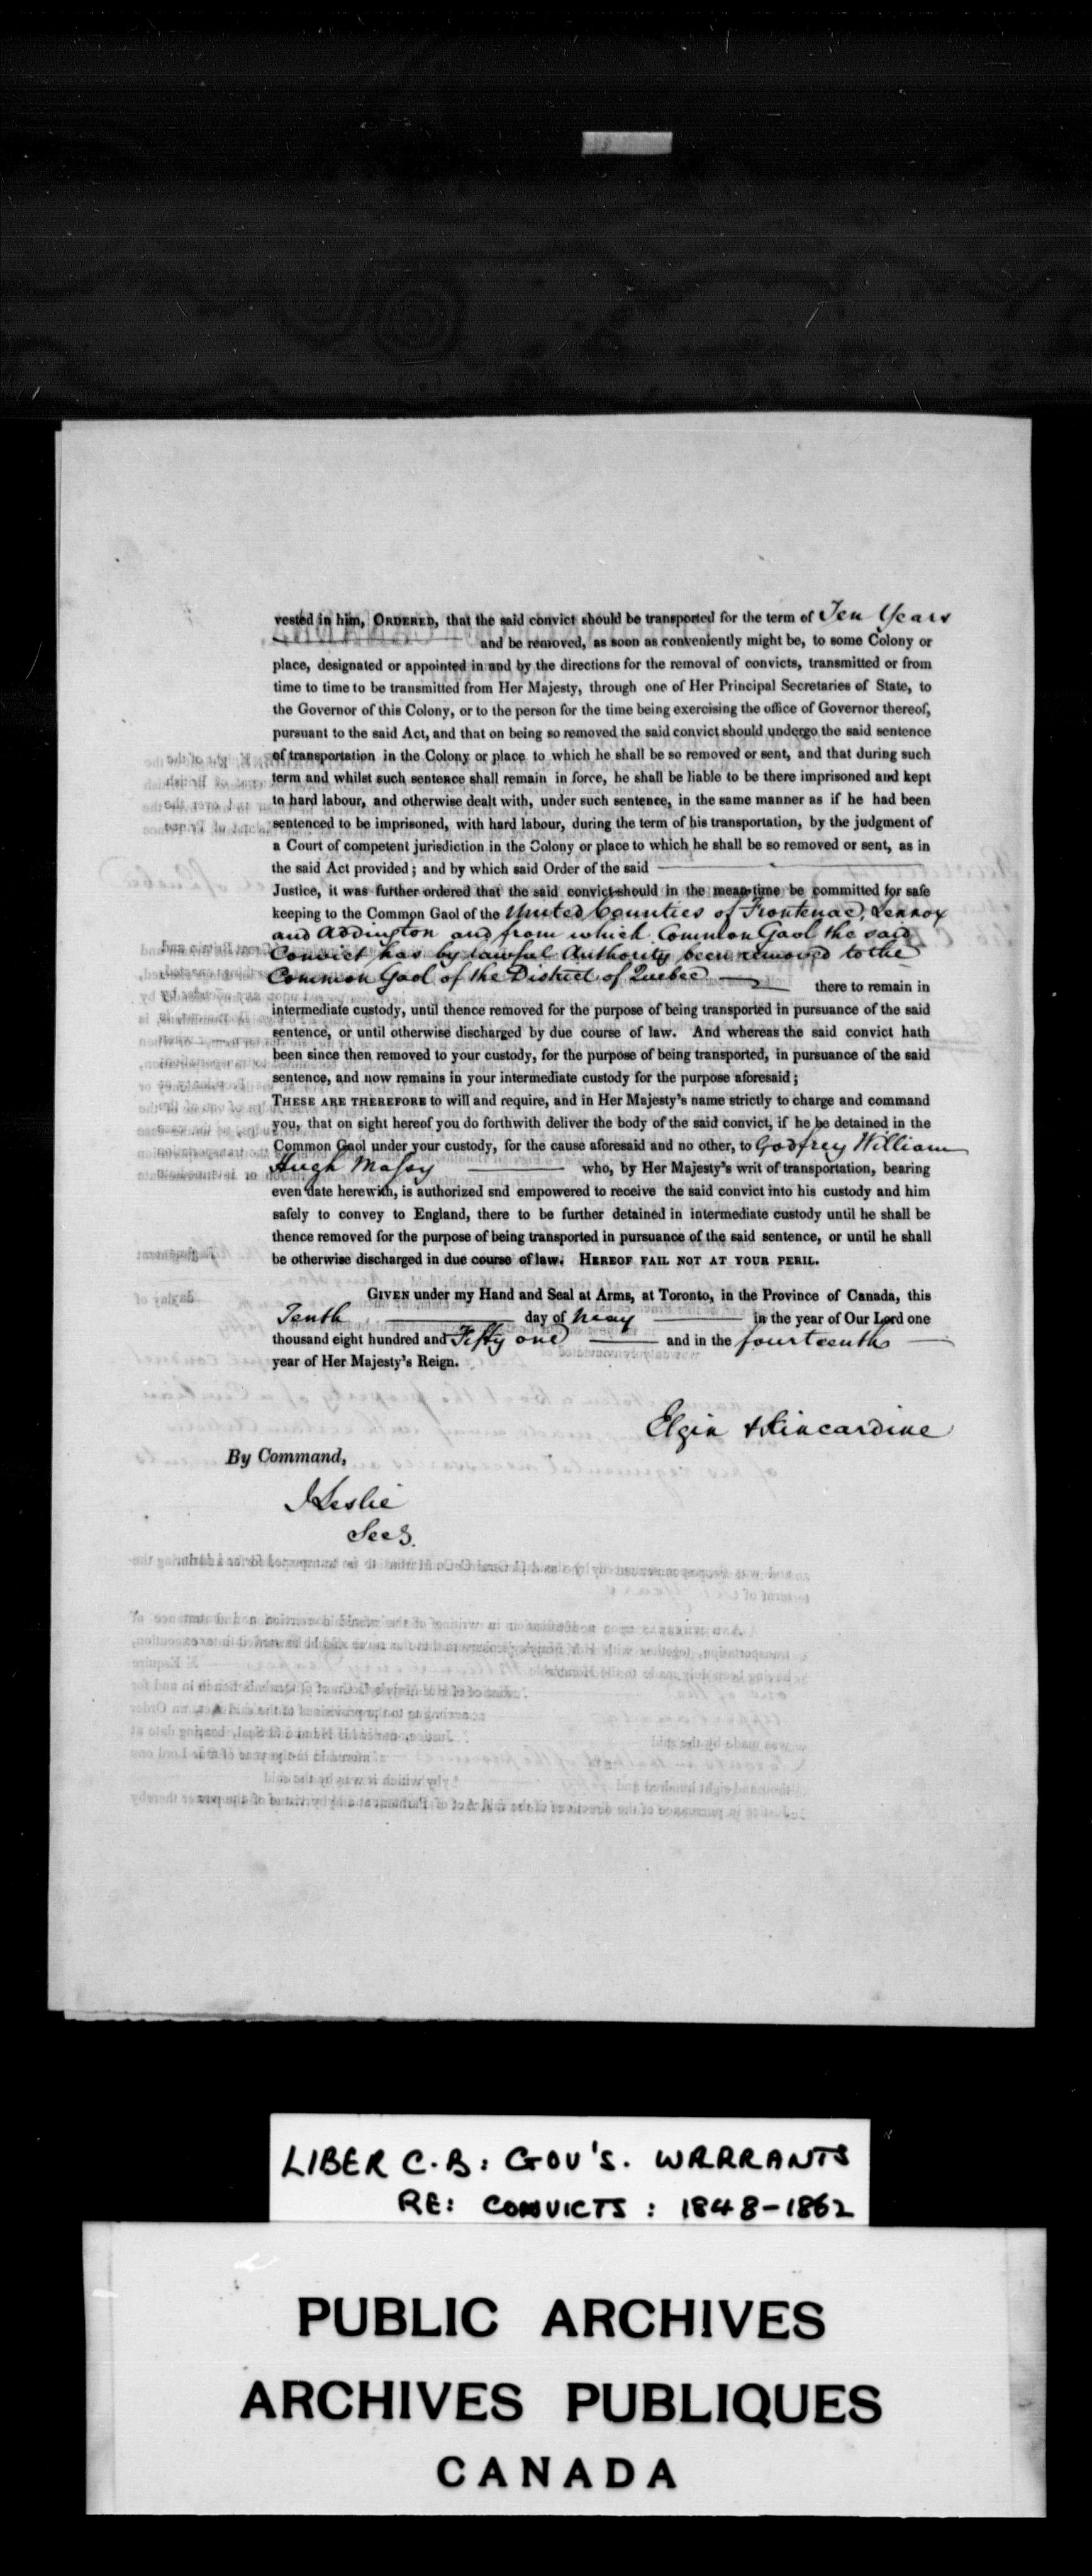 vested in him, ORDERED, that the said convict should be transported for the term of Ten Years
and be removed, as soon as conveniently might be, to some Colony or
place, designated or appointed in and by the directions for the removal of convicts, transmitted or from
time to time to be transmitted from Her Majesty, through one of Her Principal Secretaries of State, to
the Governor of this Colony, or to the person for the time being exercising the office of Governor thereof,
pursuant to the said Act, and that on being so removed the said convict should undergo the said sentence
of transportation in the Colony or place to which he shall be so removed or sent, and that during such
term and whilst such sentence shall remain in force, he shall be liable to be there imprisoned and kept
to hard labour, and otherwise dealt with, under such sentence, in the same manner as if he had been
sentenced to be imprisoned, with hard labour, during the term of his transportation, by the judgment of
a Court of competent jurisdiction in the Colony or place to which he shall be so removed or sent, as in
the said Act provided; and by which said Order of the said
Justice, it was further ordered that the said convict should in the mean time be committed for safe
keeping to the Common Gaol of the United Counties of Frontenac, Lennox
and Addington and from which Common Gaol the said
Convict has by lawful Authority been removed to the
Common Gaol of the District of Quebec there to remain in
intermediate custody, until thence removed for the purpose of being transported in pursuance of the said
sentence, or until otherwise discharged by due course of law. And whereas the said convict hath
been since then removed to your custody, for the purpose of being transported, in pursuance of the said
sentence, and now remains in your intermediate custody for the purpose aforesaid;
THESE ARE THEREFORE to will and require, and in Her Majesty's name strictly to charge and command
you, that on sight hereof you do forthwith deliver the body of the said convict, if he be detained in the
Common Gaol under your custody, for the cause aforesaid and no other, to Godfrey William
Hugh Massy who, by Her Majesty's writ of transportation, bearing
even date herewith, is authorized snd empowered to receive the said convict into his custody and him
safely to convey to England, there to be further detained in intermediate custody until he shall be
thence removed for the purpose of being transported in pursuance of the said sentence, or until he shall
be otherwise discharged in due course of law. HEREOF FAIL NOT AT YOUR PERIL.
GIVEN under my Hand and Seal at Arms, at Toronto, in the Province of Canada, this
Tenth day of May in the year of Our Lord one
thousand eight hundred and Fifty one and in the fourteenth
year of Her Majesty's Reign.
Elgin & Kincardine
By Command,
J Leslie
Secy.
LIBER C.B: GOV'S. WARRANTS
RE: CONVICTS: 1848-1862
PUBLIC ARCHIVES
ARCHIVES PUBLIQUES
CANADA